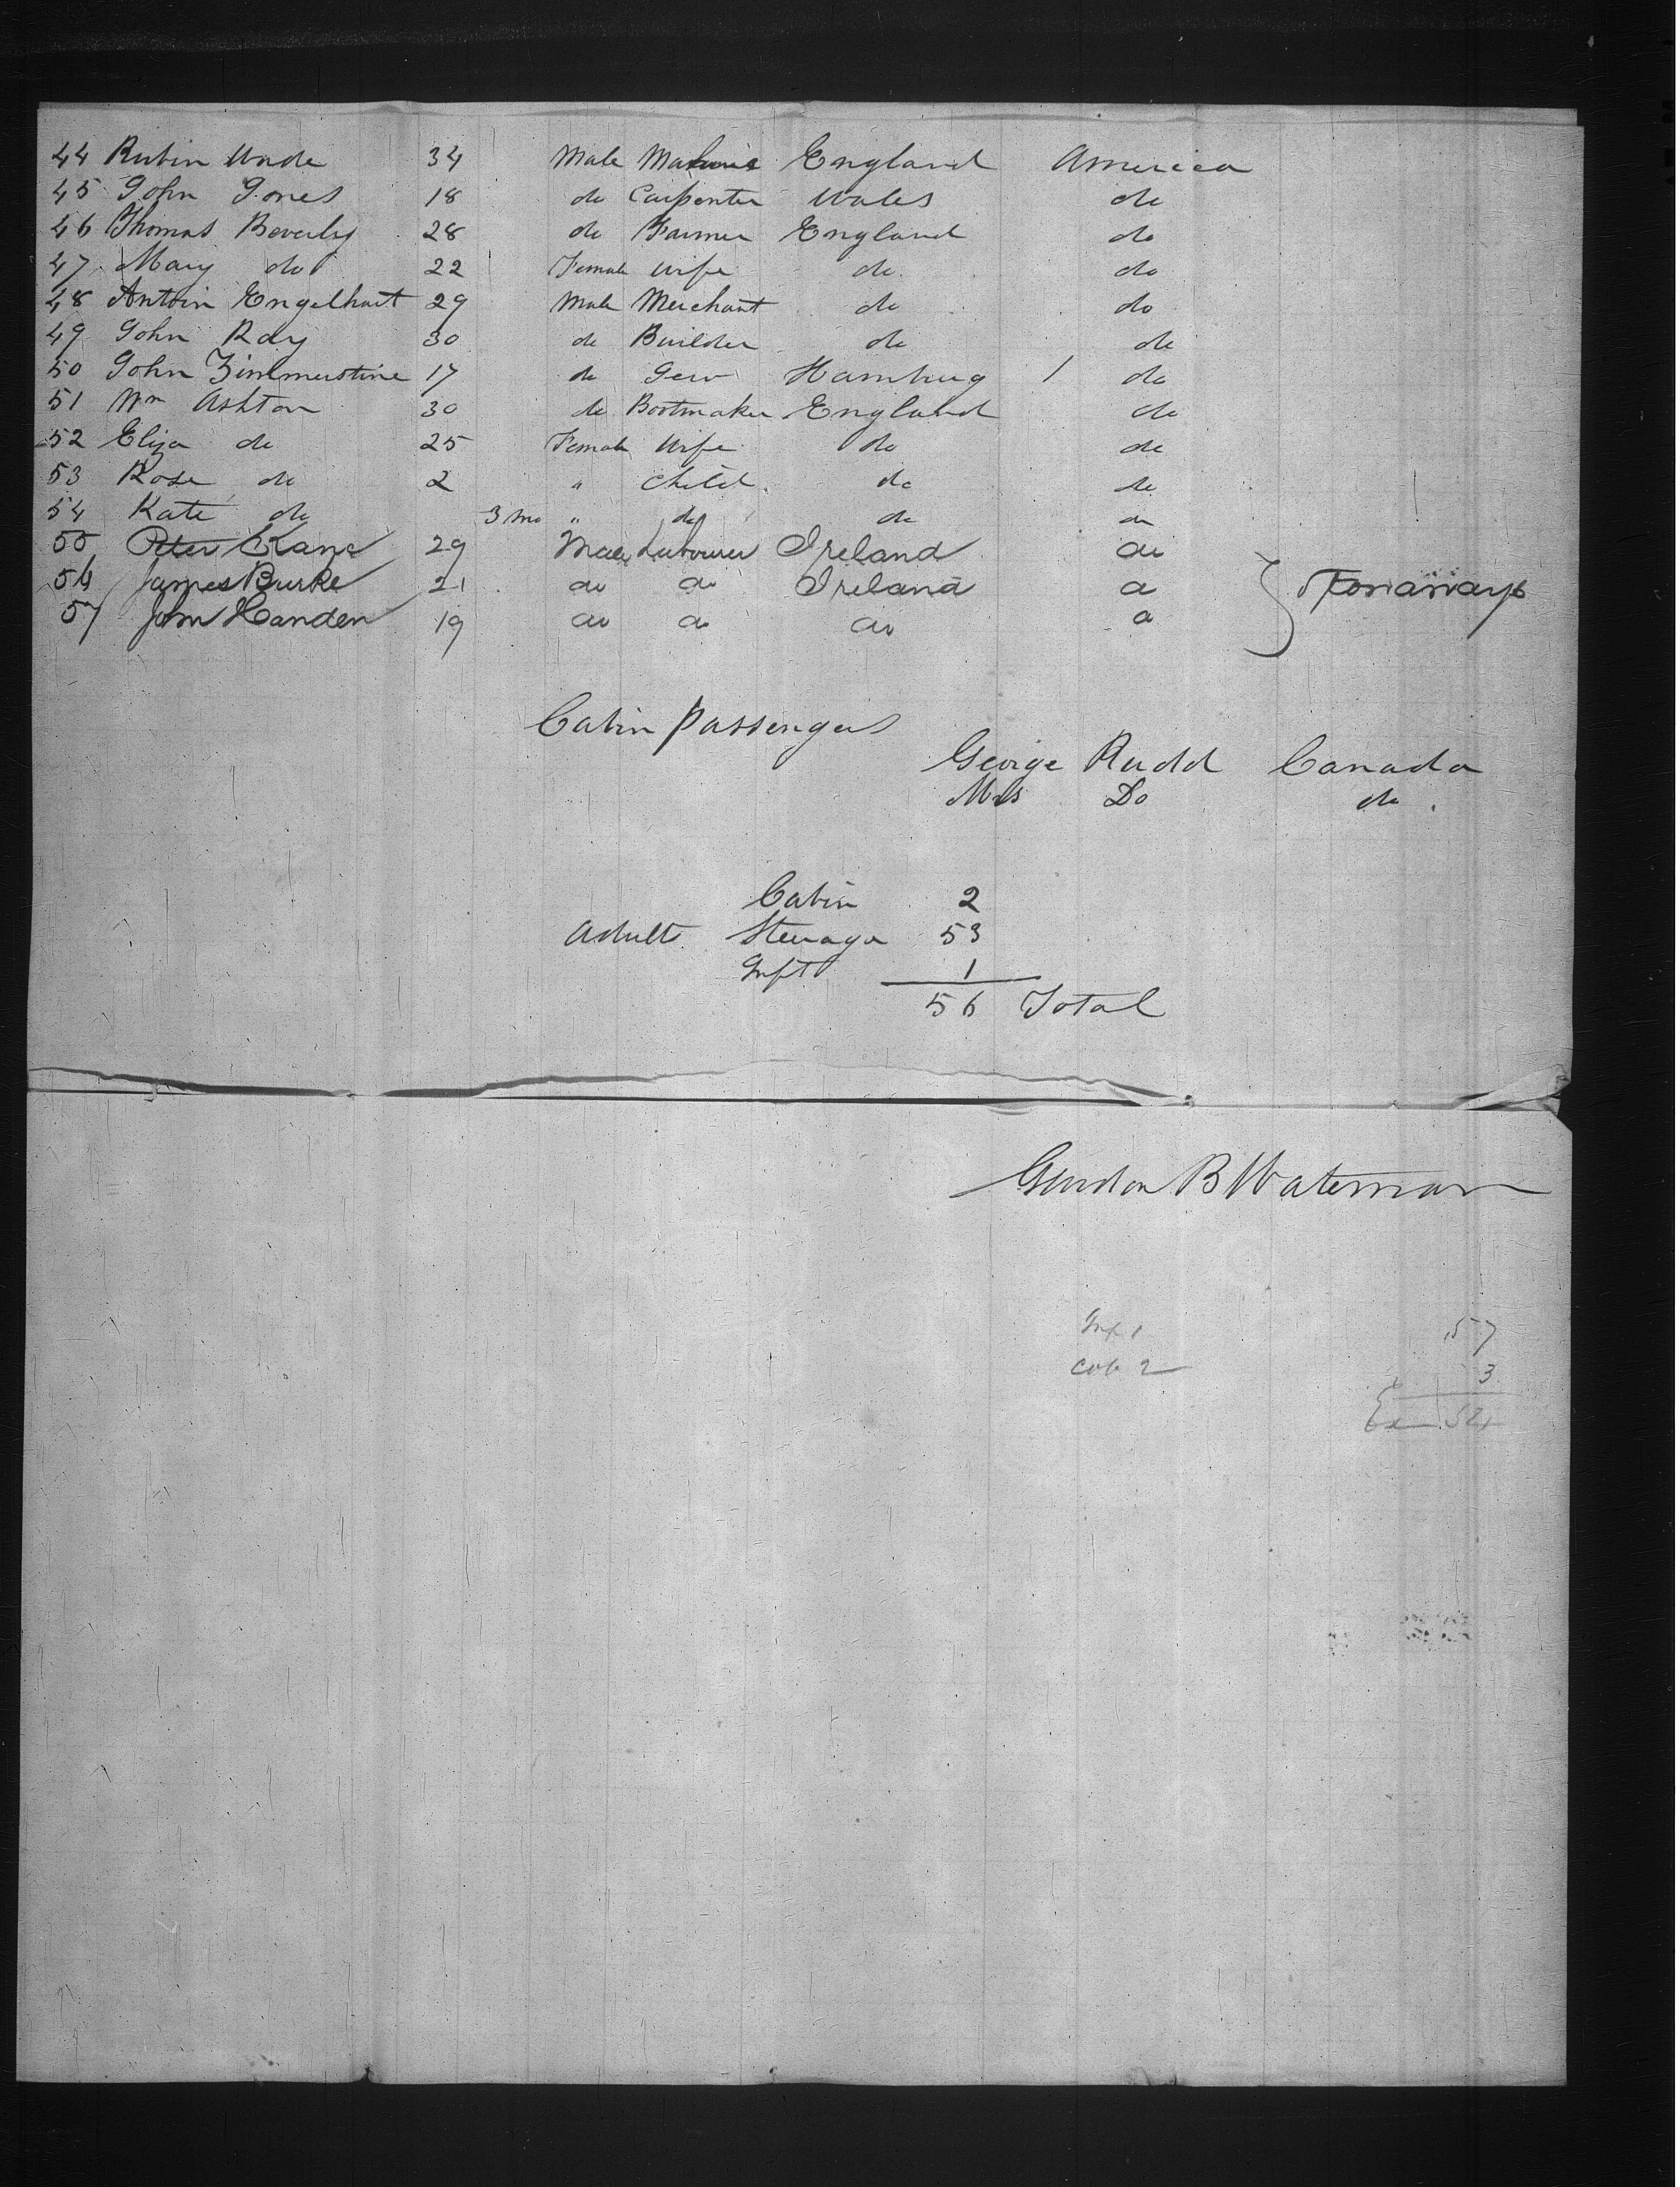 44 Rubin Wade 34 Male England America
45 John Jones 18 do Carpenter Wales do
46 Thomas Beverley 28 do Farmer England do
47 Mary do 22 Female Wife do do
48 Antoin Engelhart 29 Male Merchant do do
49 John Ray 30 do Builder do do
50 John Zimmerstine 17 do Hamburg 1 do
51 Wm Ashton 30 do Bootmaker England do
52 Eliza do 25 Female Wife do do
53 Rose do 2 " Child do do
54 Kate do 3 mo " do do do
55 Peter Kane 29 Male Labourer Ireland do
56 James Burke 21 do do Ireland do
57 John Handen 19 do do do do
Cabin Passengers
George Rudd Canada
Mrs Do do
Cabin 2
Adult Steerage 53
Inft 1
56 Total
B Waterman
Inf 1 57
Cab 2 3
54